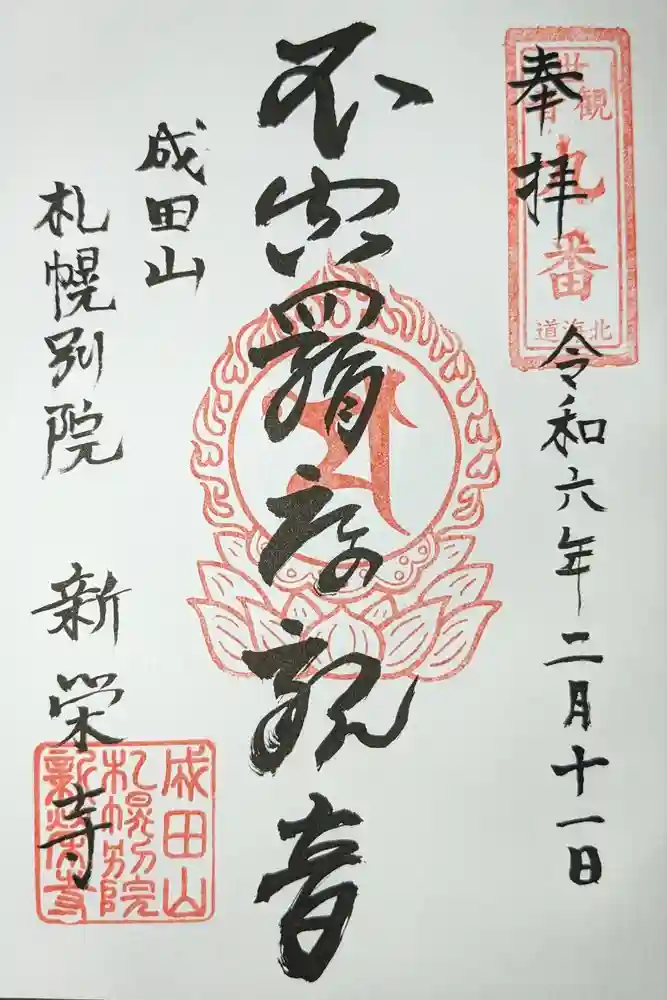 奉拝
令和六年二月十一日
卅
観音
九番
北海道
不空羂索観音
成田山
札幌別院
新栄寺
成田山
札幌別院
新栄寺